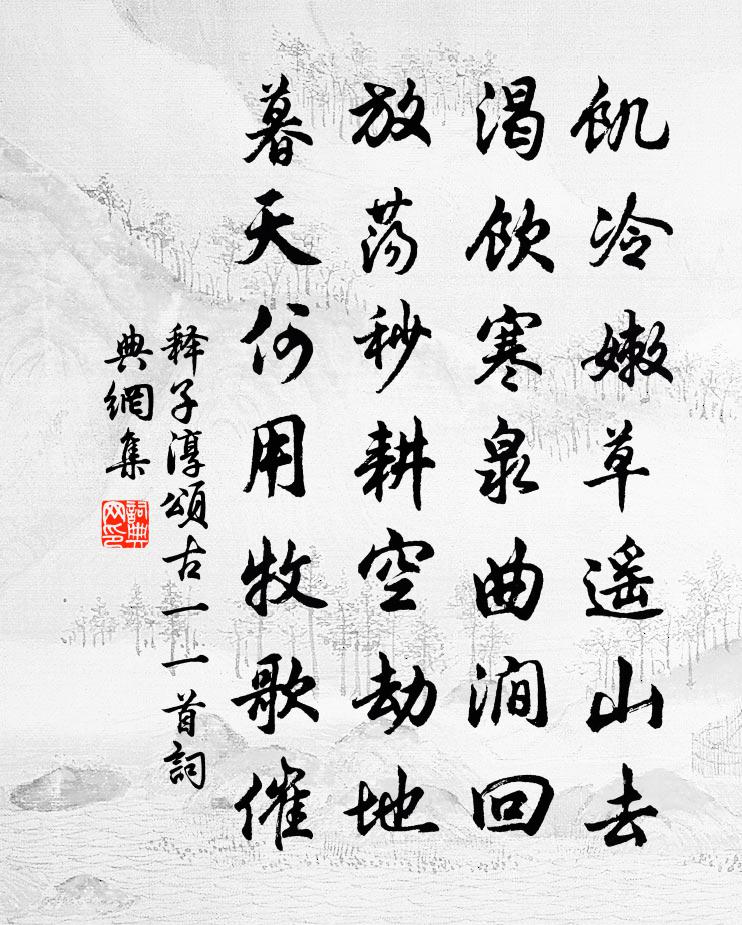 飢冷嫩草遥山去
渴饮寒泉曲澗回
放荡秒耕空劫地
暮天何用牧歌催
释子淳頌古一一首詞
典網集
詞典
网印